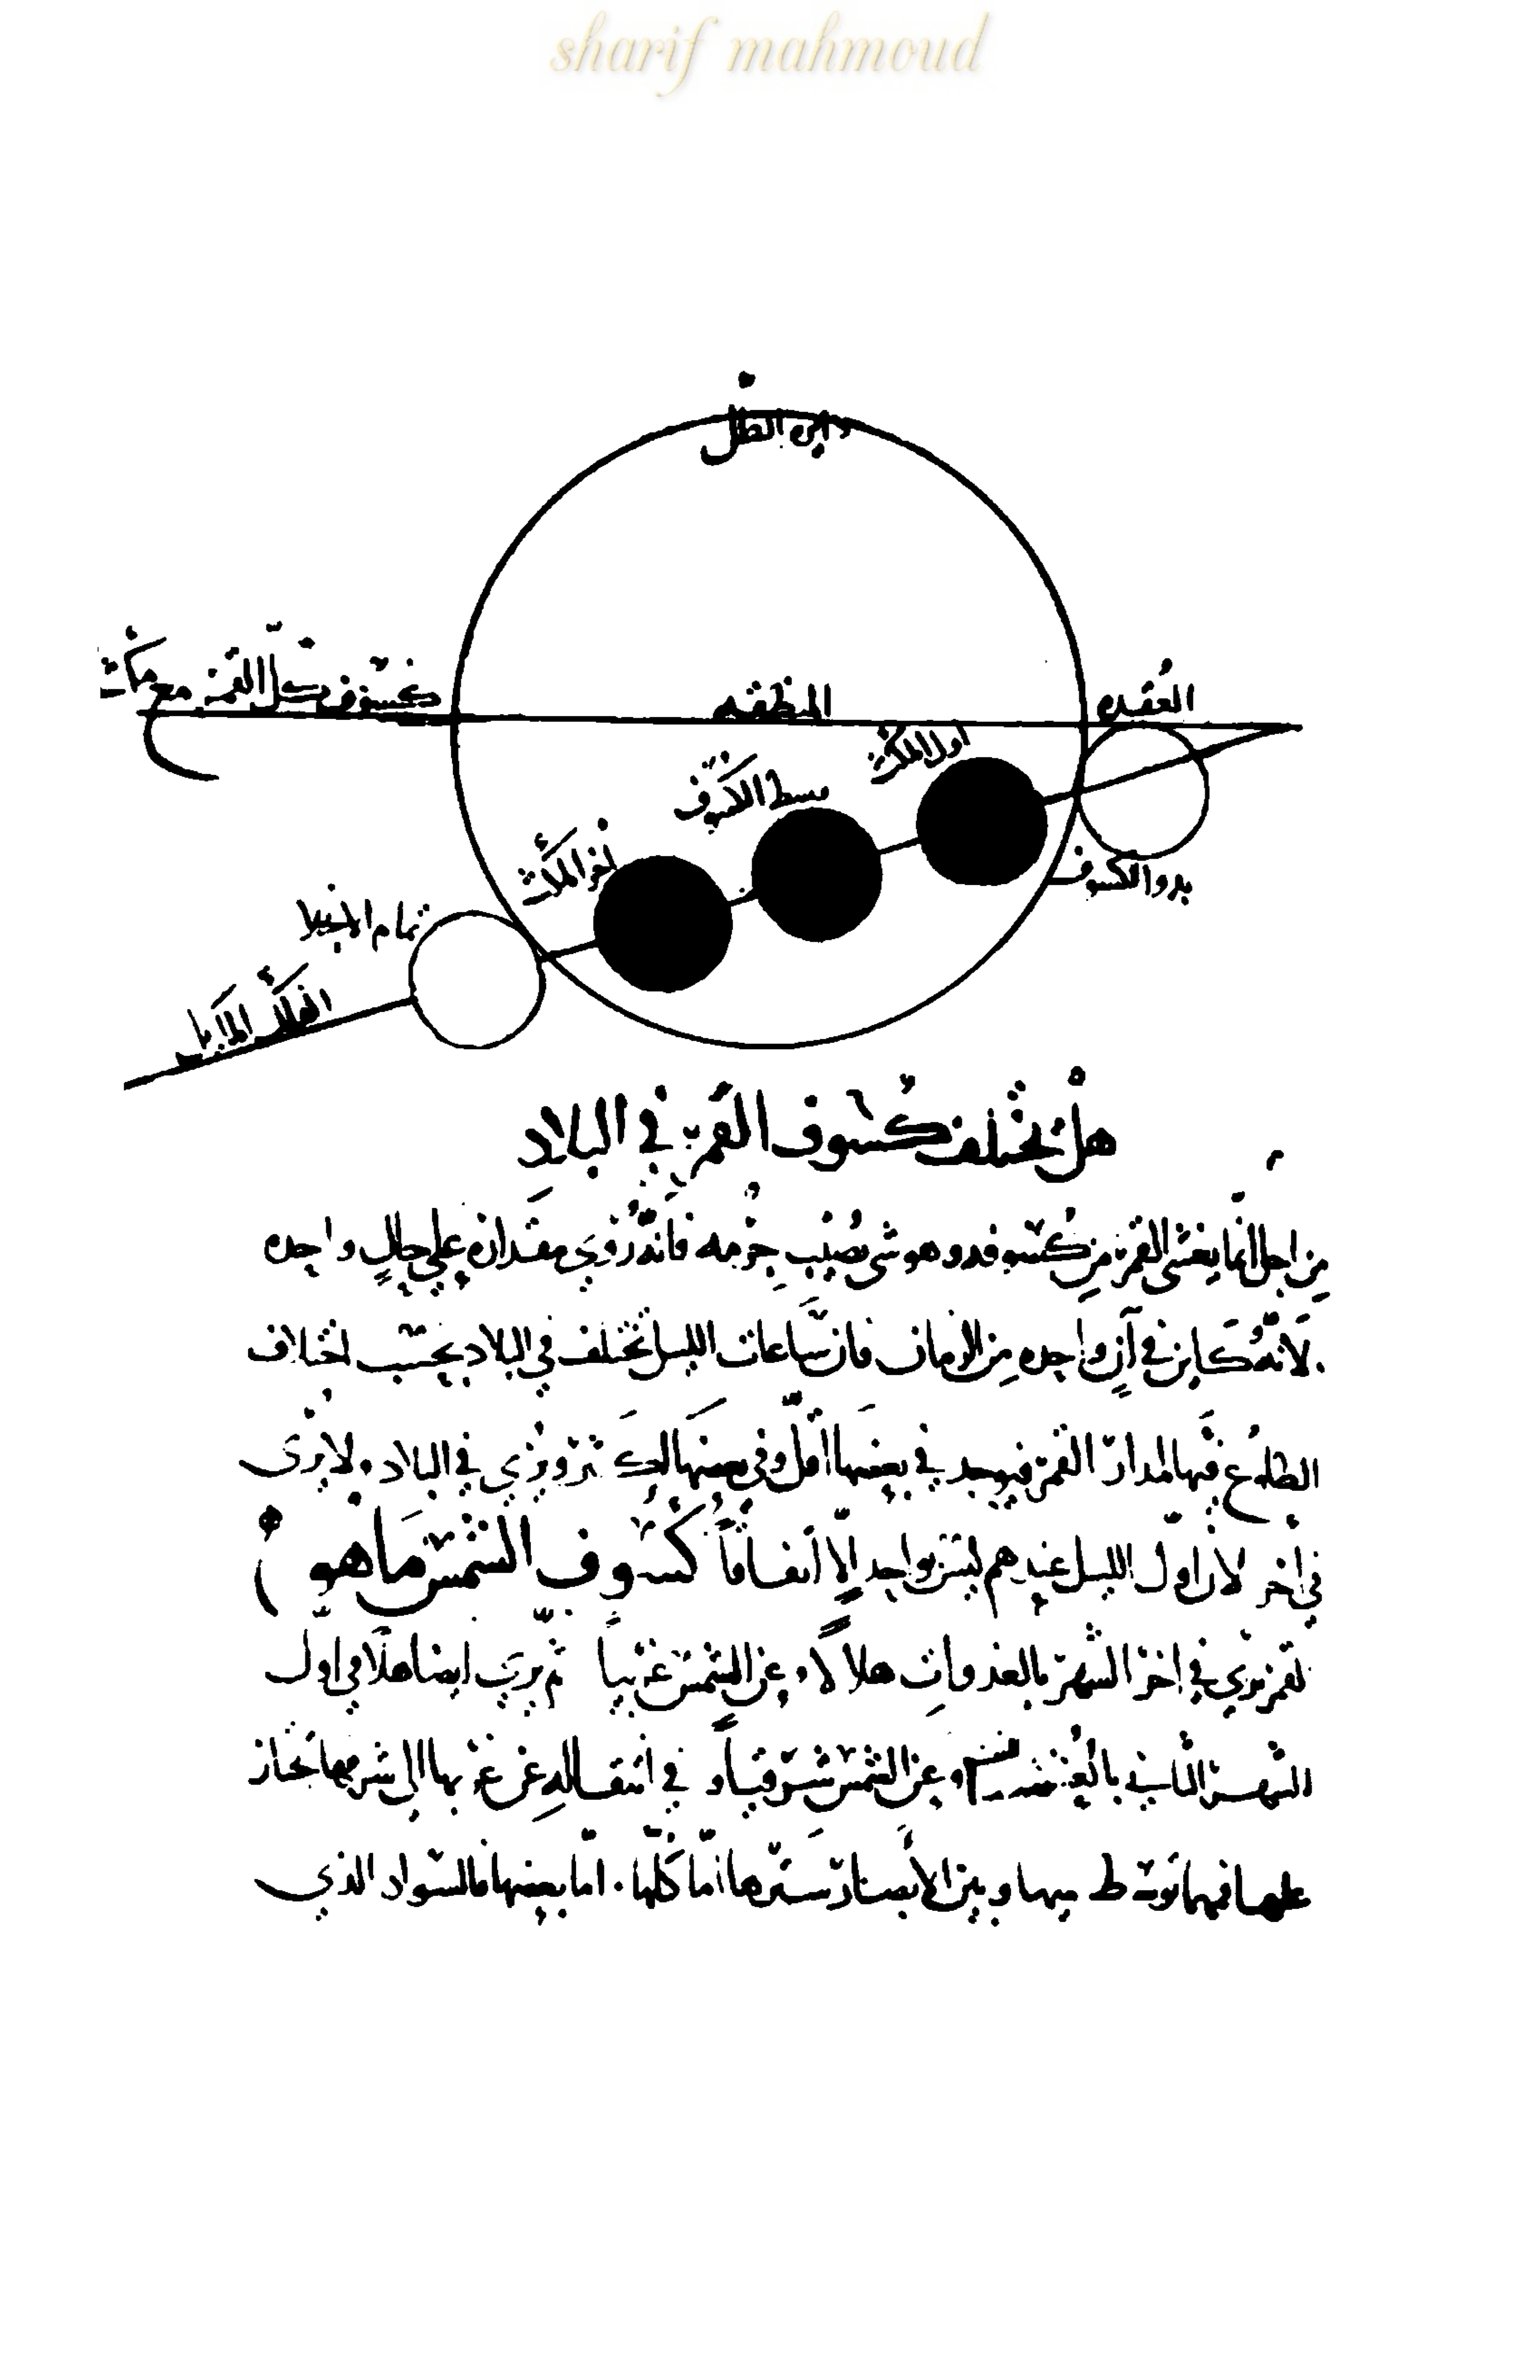 sharif mahmoud
دايره الظل
كسوف كل القمر مع مكث
المنطقه
العقده
اول المكث
وسط الكسوف
اخر المكث
بدو الكسوف
تمام الانجلا
الفلك المايل
هل يختلف كسوف القمر في البلاد
من اجل انما يغشى القمر من كسوفه وهو شى يصيب جرمه فانه رُؤي مقداره علي حالٍ واحده
لانه كاين في آنٍ واحده من الازمان فان ساعات الليل تختلف في البلاد بحسب اختلاف
الطلوع فيها لمدار القمر فيوجد في بعضها اقل وفى بعضها اكثر ويُرى في البلاد ولا يرى
في اخر لان اول الليل عندهم ليس بواحد الا اتفاقاً كسوف الشمس ما هو
القمر يرى في اخر الشهر بالغدوات هلالا وعن الشمس غربياً ثم يرى ايضا هلالا في اول
الشهر الثاني وعن الشمس شرقياً و في انتقاله عن غربها الى شرقها تجاز
عليها فمهما توسط بينها وبين الابصار سترها اما كلها . اما بعضها فالسواد الذي